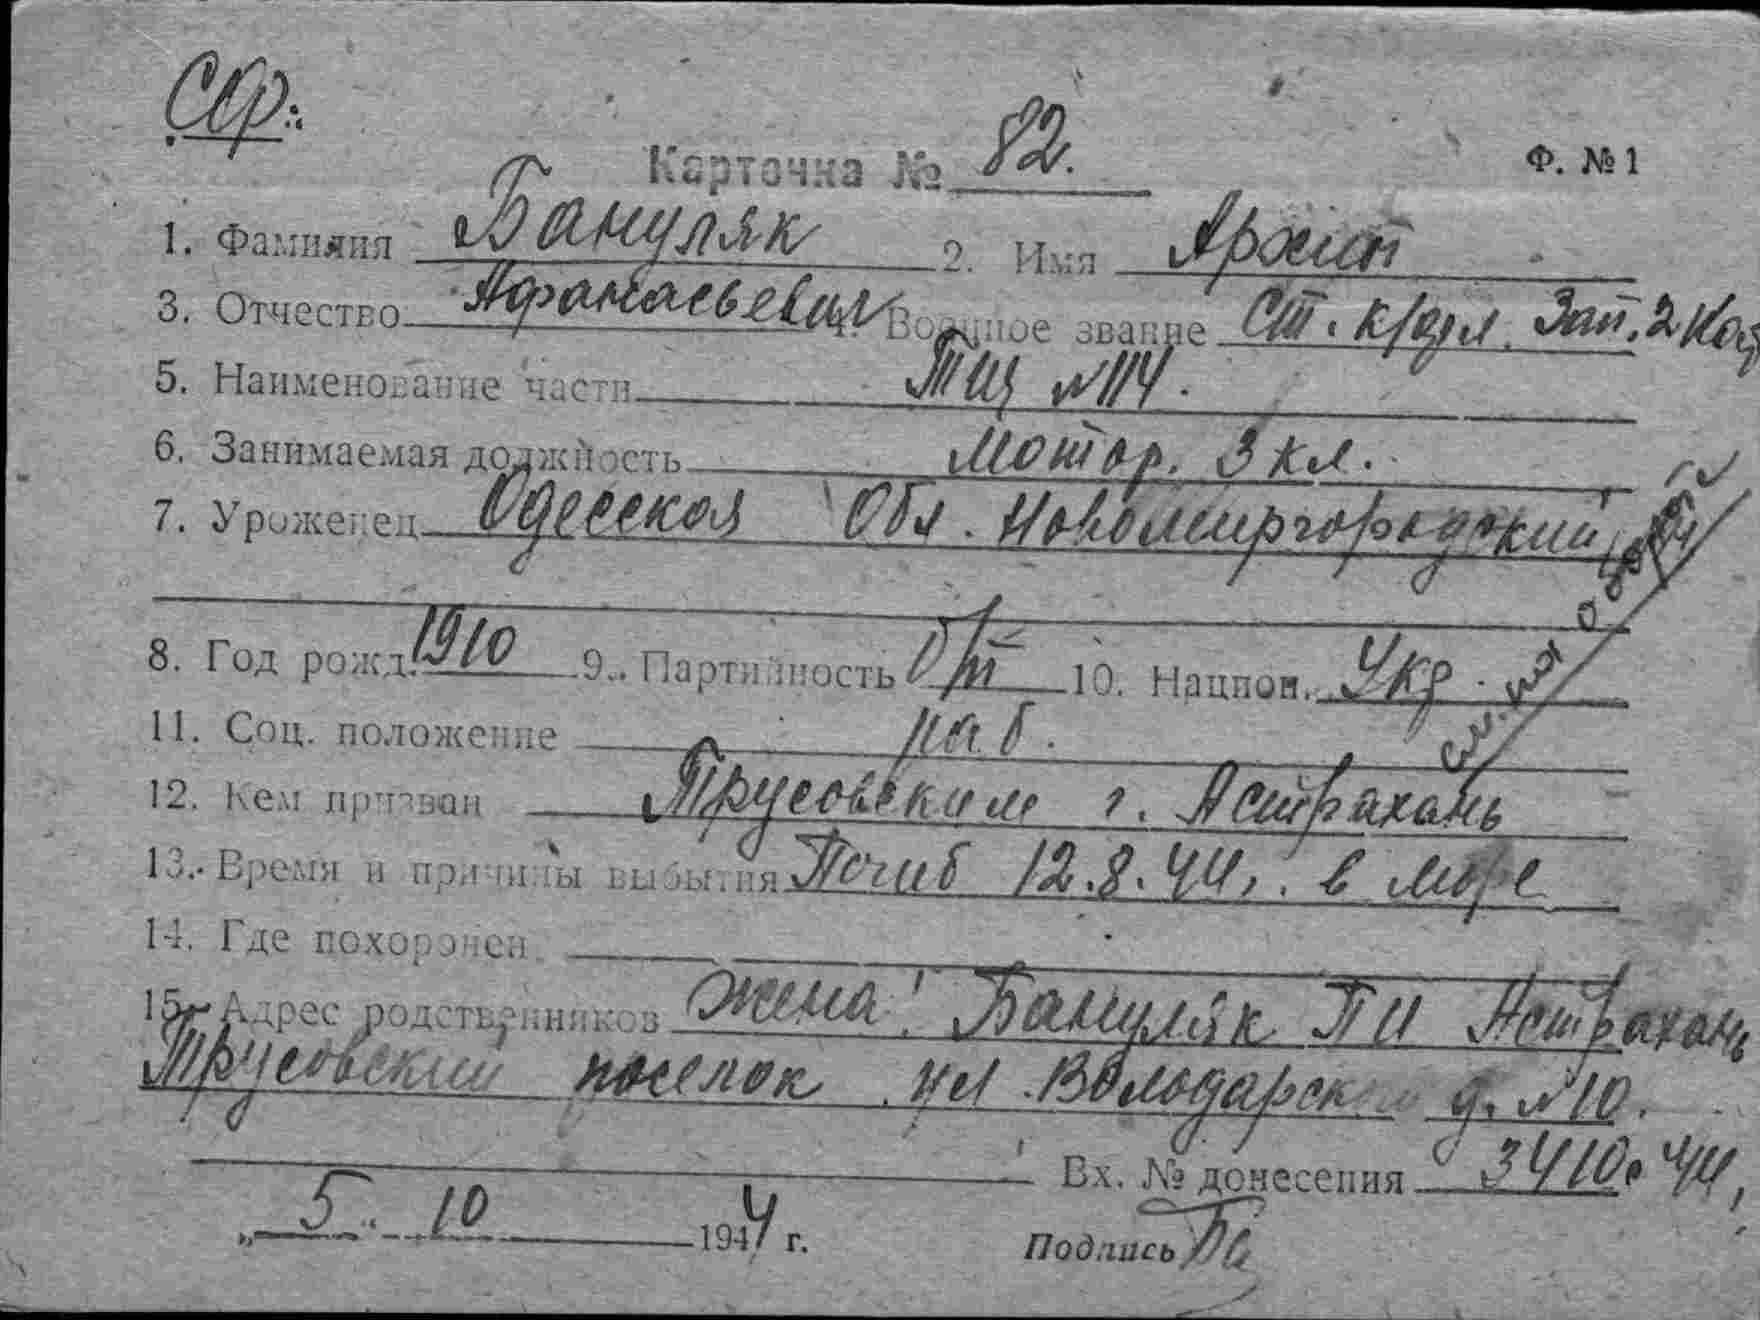 Карточка № 82.
Ф. № 1
1. Фамилия Бануляк 2. Имя Архип
3. Отчество Афанасьевич Военное звание Ст. к/фл. Зап. 2 Ко
5. Наименование части ТЩ №114.
6. Занимаемая должность Мотор. 3 кл.
7. Уроженец Одесская Обл. Новомиргородский
8. Год рожд. 1910 9. Партийность б/п 10. Национ. Укр.
см. на обор
11. Соц. положение раб.
12. Кем призван Трусовским г. Астрахань
13. Время и причины выбытия Погиб 12.8.44 г. в море
14. Где похоронен
15. Адрес родственников Жена: Бануляк П И Астрахань
Трусовский поселок ул. Володарск д. №10.
Вх. № донесения 3410с 44
„ 5 " 10 1944 г. Подпись